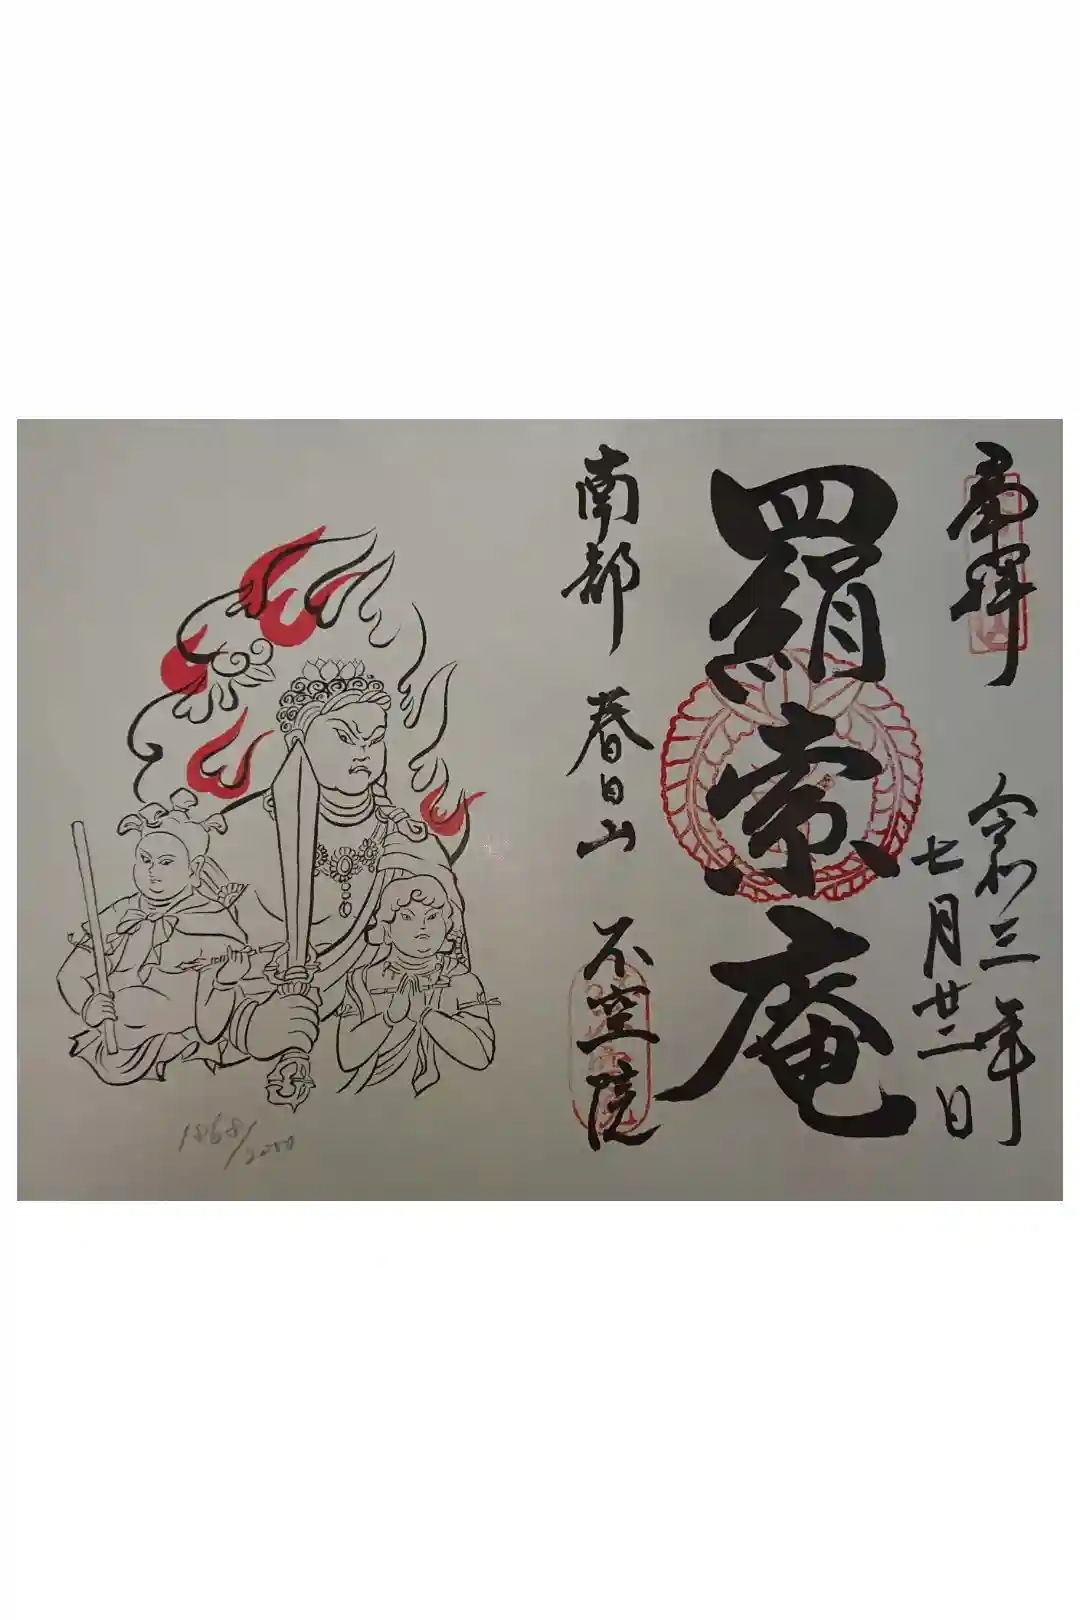 奉拝
令和三年
七月廿二日
羂索庵
南都 春日山 不空院
1868/2000